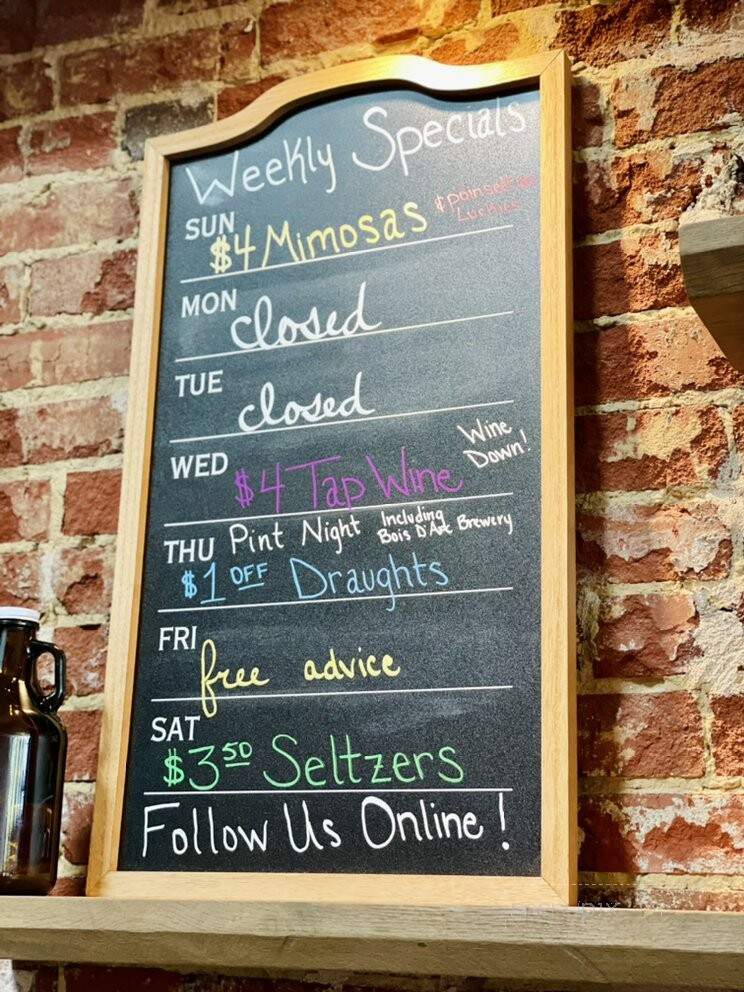 Weekly Specials
SUN
$4 Mimosas
MON
closed
TUE
closed
WED
$4 Tap Wine
Wine
Down!
THU
Pint Night
Including
Bois D'Arc Brewery
$1 OFF Draughts
FRI
free advice
SAT
$3 50 Seltzers
Follow Us Online!